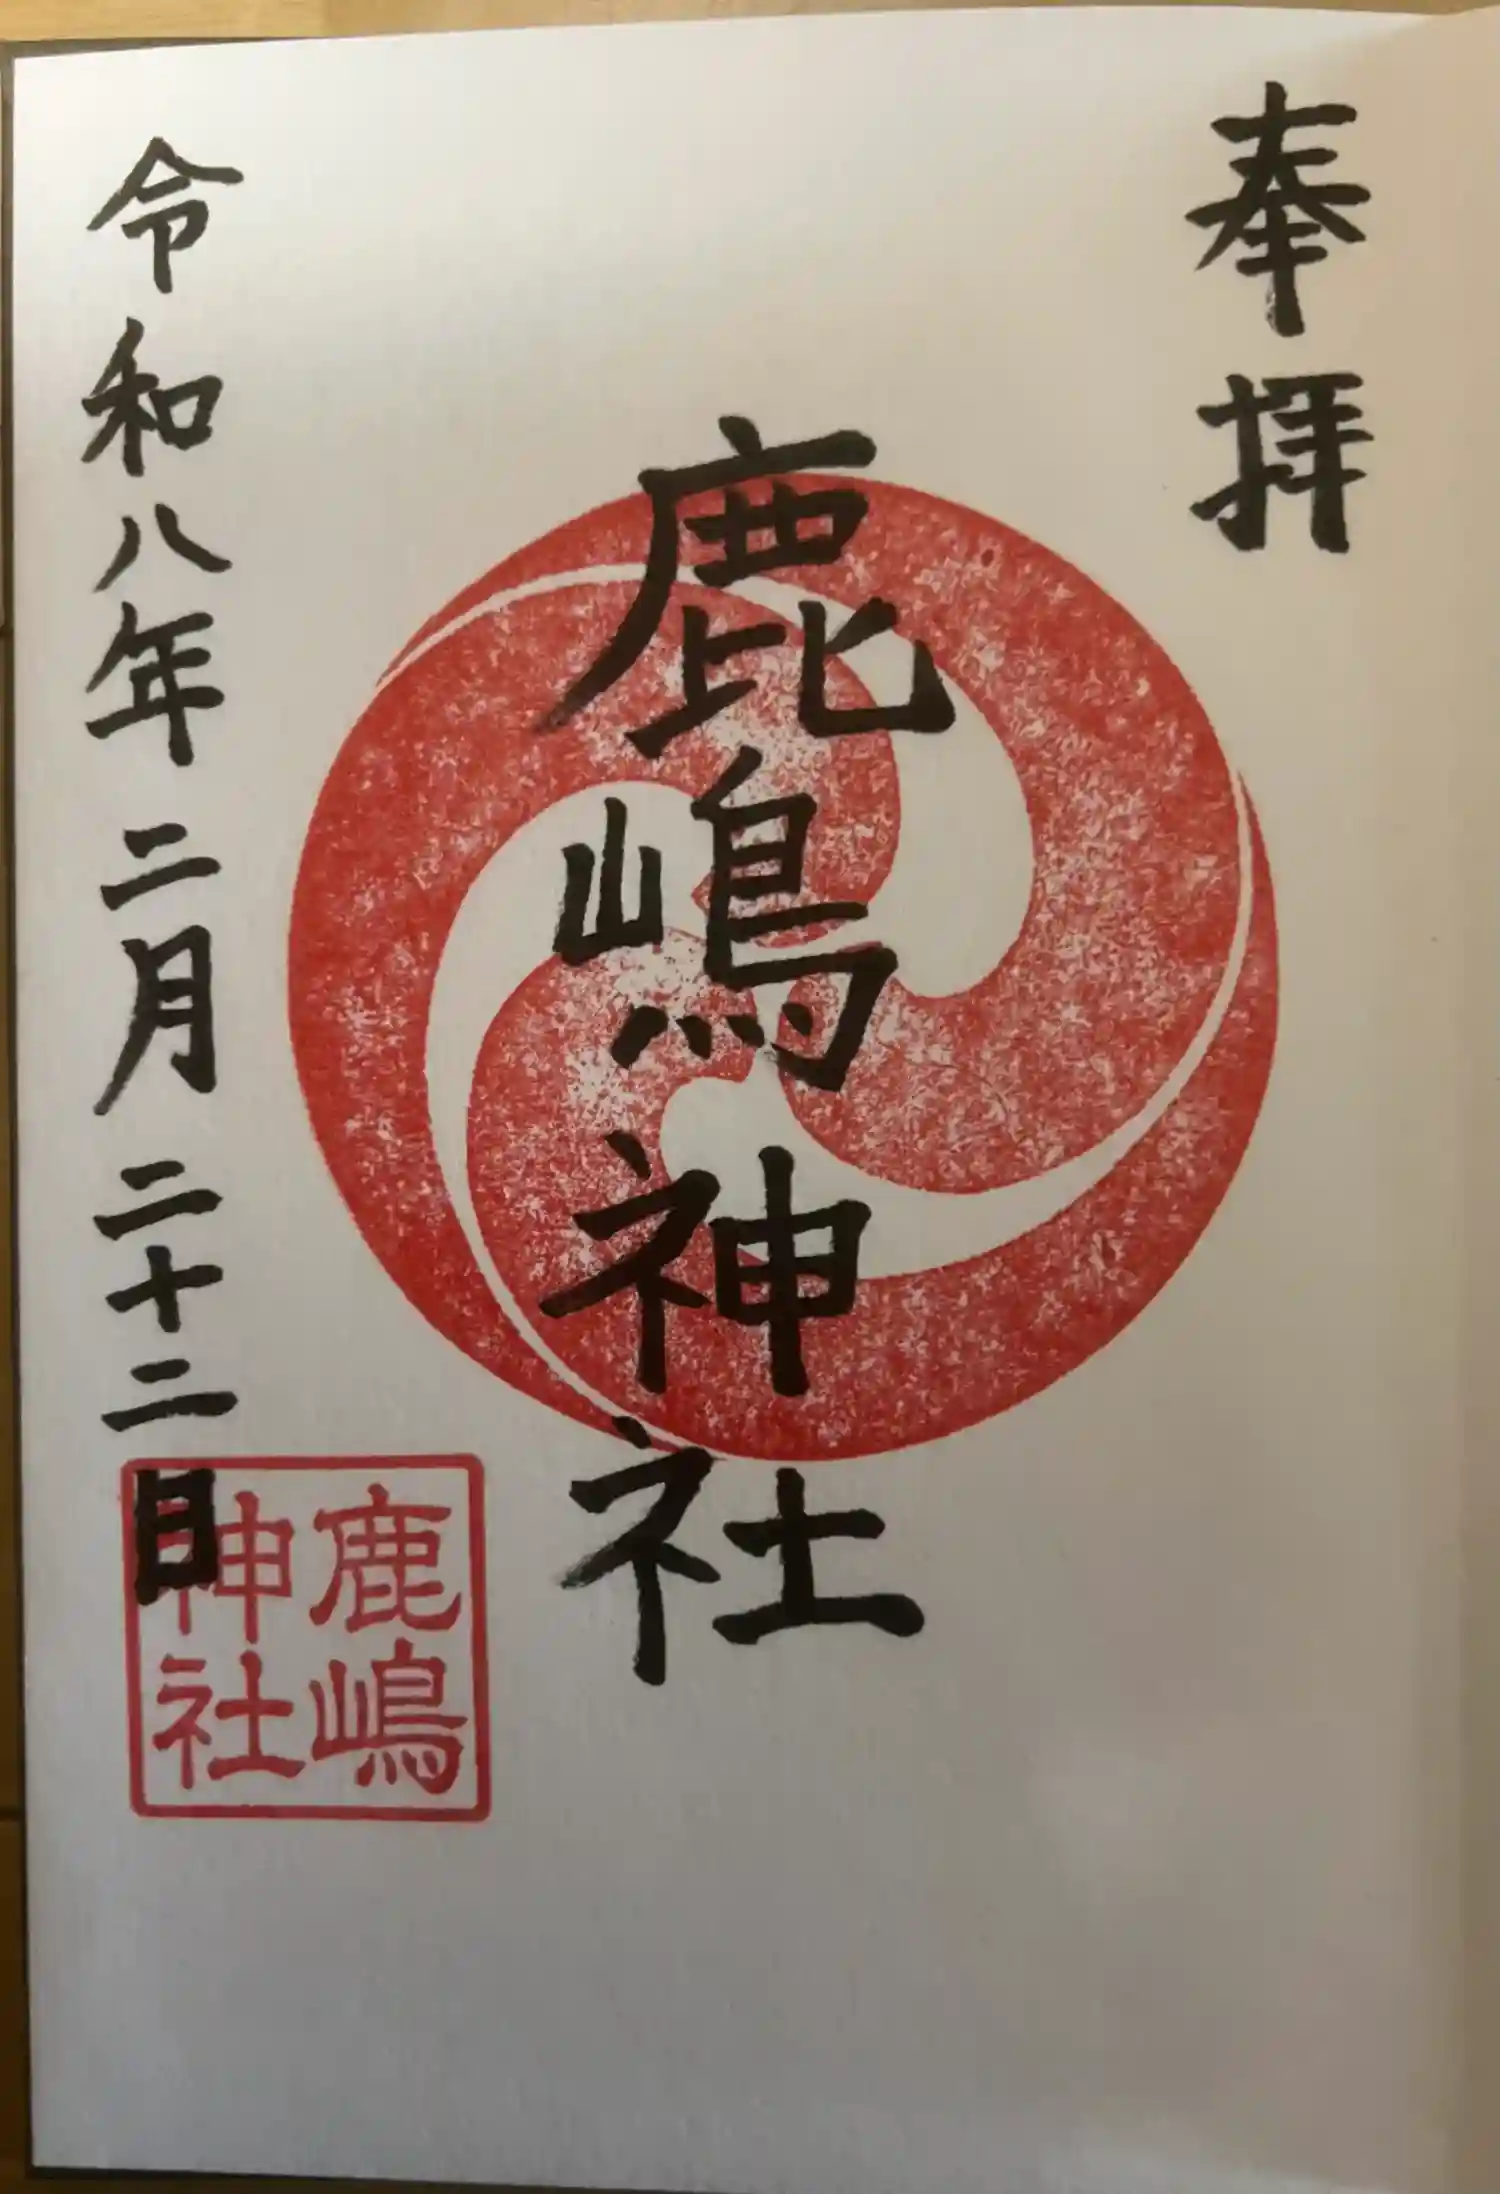 奉拝
鹿嶋神社
令和八年二月二十二日
鹿嶋
神社